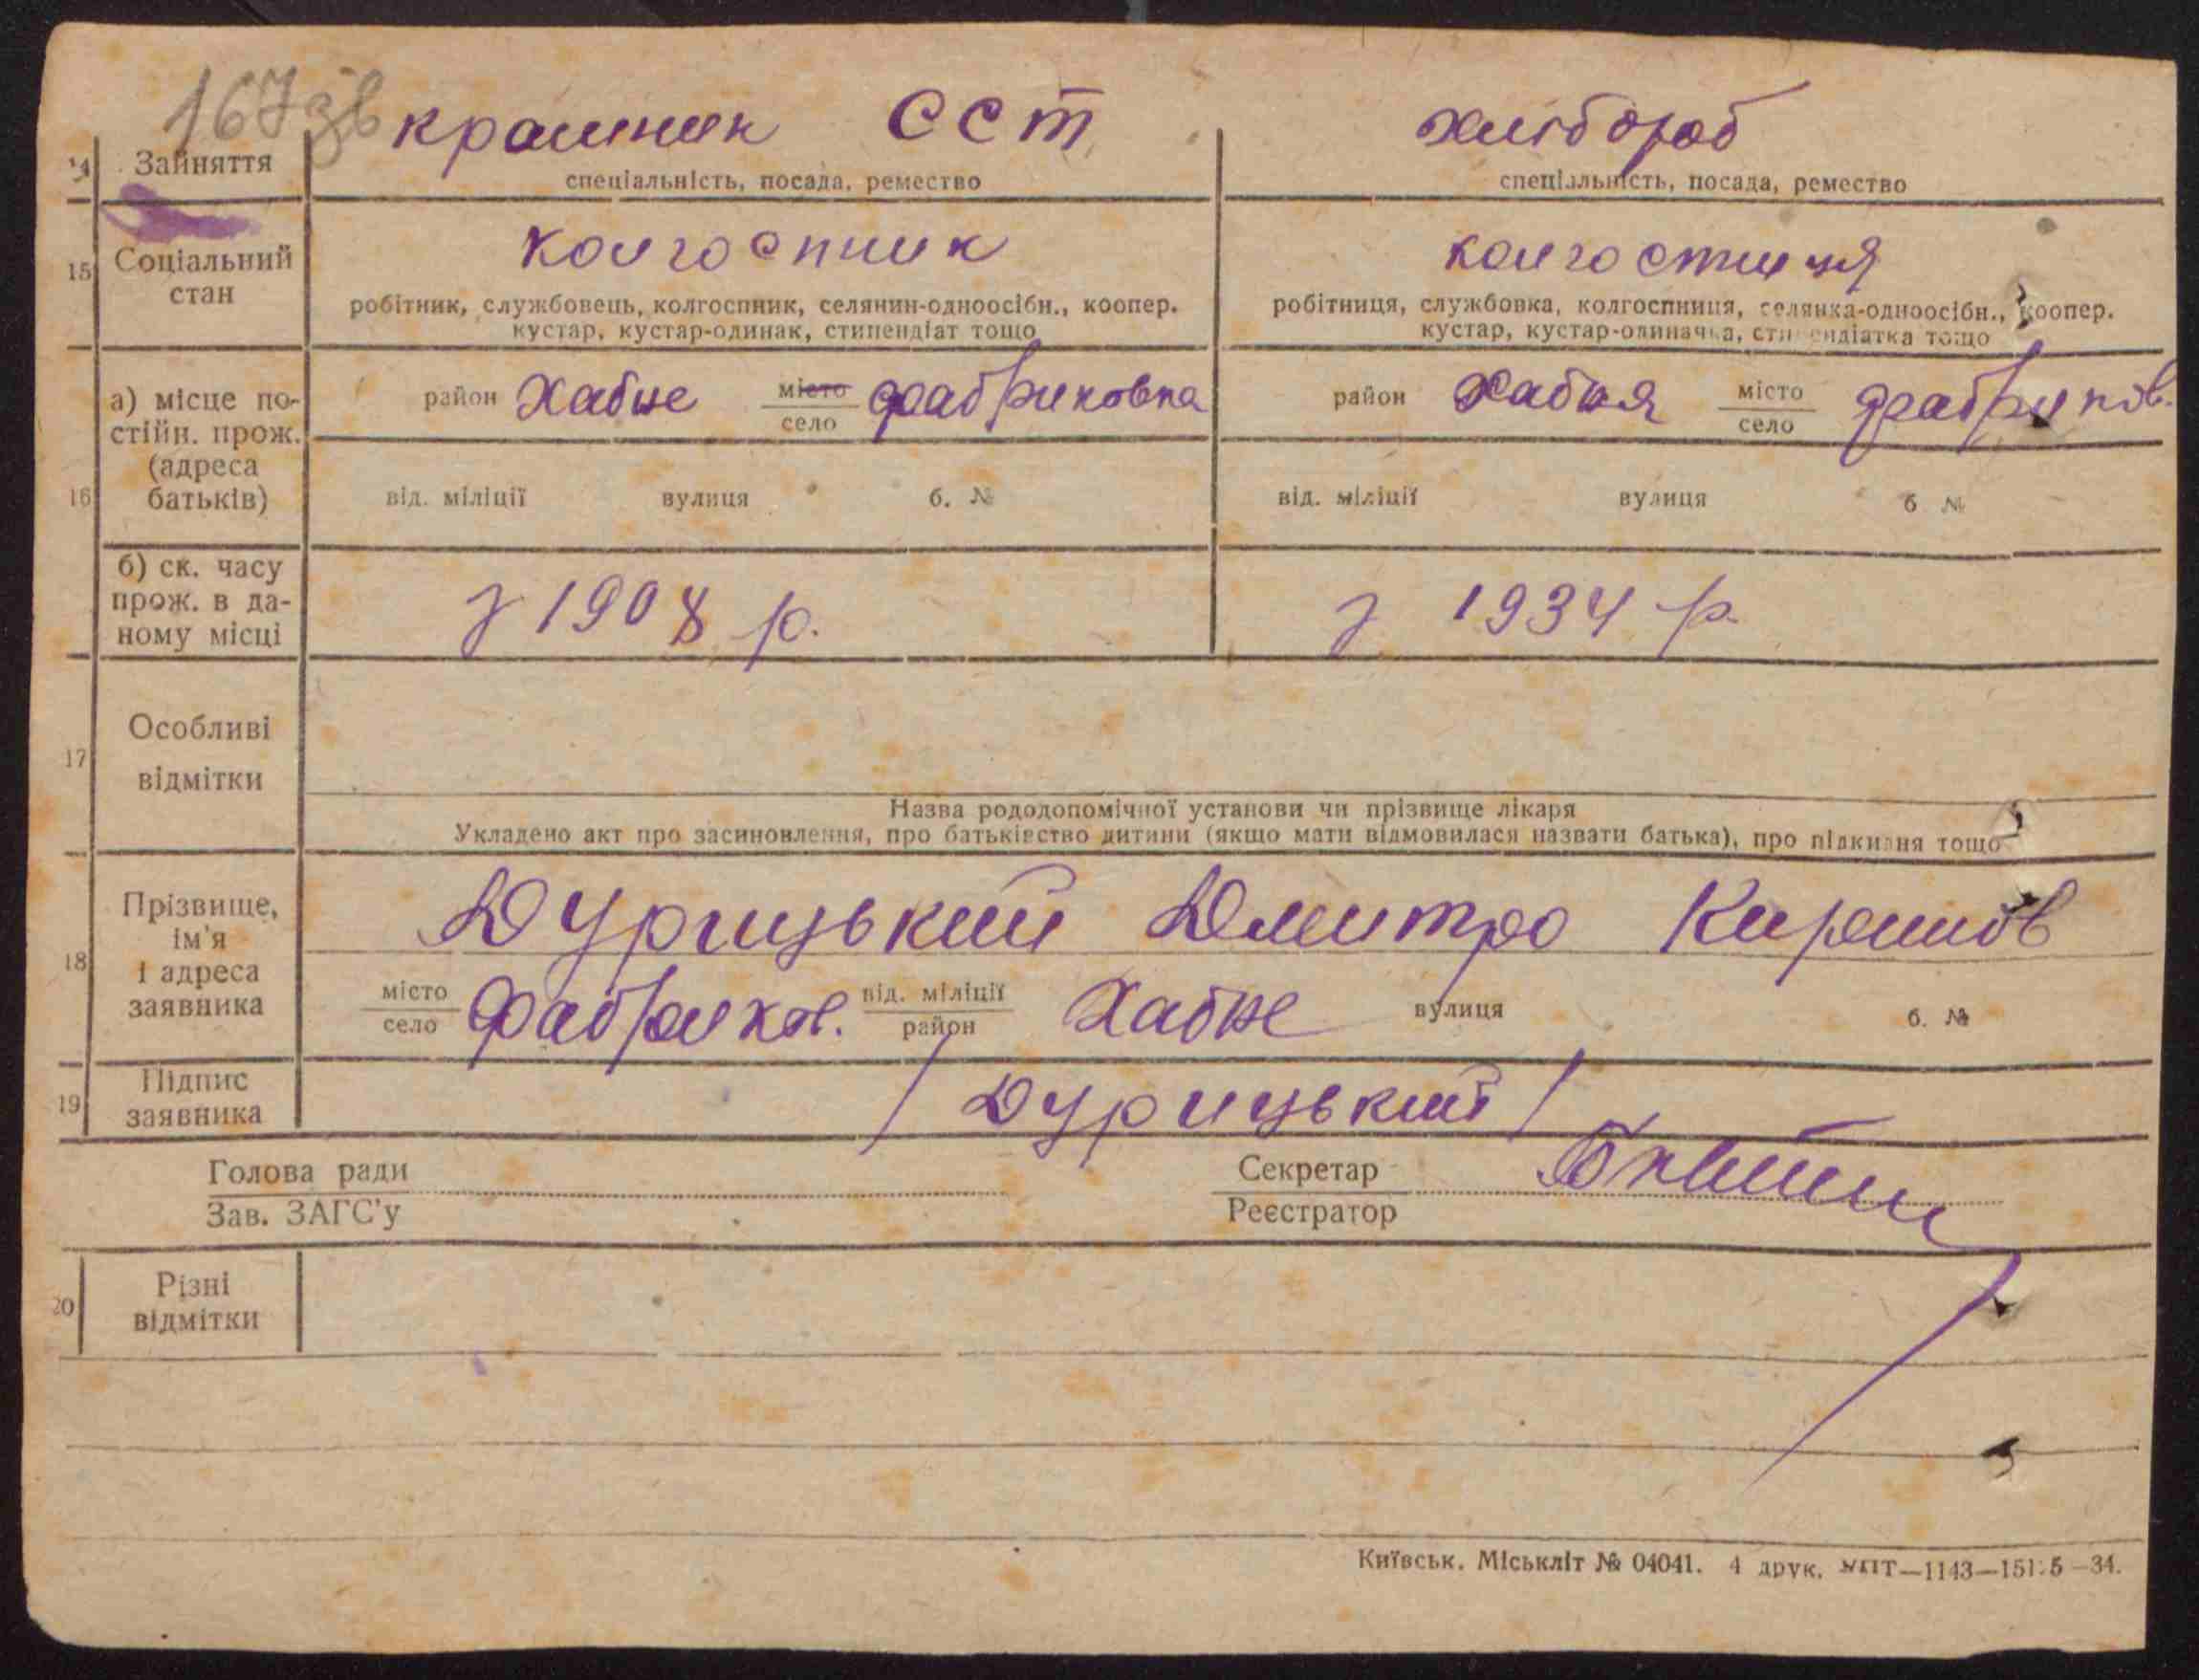 167 зв
крамник ССТ хлібороб
14 Зайняття
спеціальність, посада, ремество спеціяльність, посада, ремество
колгоспник колгоспниця
15 Соціальний стан
робітник, службовець, колгоспник, селянин-одноосібн., коопер. робітниця, службовка, колгоспниця, селянка-одноосібн., коопер.
кустар, кустар-одинак, стипендіат тощо кустар, кустар-одиначка, стипендіатка тощо
16 а) місце постійн. прож. (адреса батьків)
район Хабне місто село Фабриковка район Хабня місто село Фабриков.
від. міліції вулиця б. № від. міліції вулиця б №
б) ск. часу прож. в даному місці
з 1908 р. з 1934 р.
17 Особливі відмітки
Назва рододопомічної установи чи прізвище лікаря
Укладено акт про засиновлення, про батьківство дитини (якщо мати відмовилася назвати батька), про підкидня тощо
18 Прізвище, ім'я і адреса заявника
Дурицький Дмитро Кирилов
місто село Фабриков. від. міліції район Хабне вулиця б. №
19 Підпис заявника
/Дурицький/
Голова ради Секретар
Зав. ЗАГС'у Реєстратор
20 Різні відмітки
Київськ. Міськліт № 04041. 4 друк.